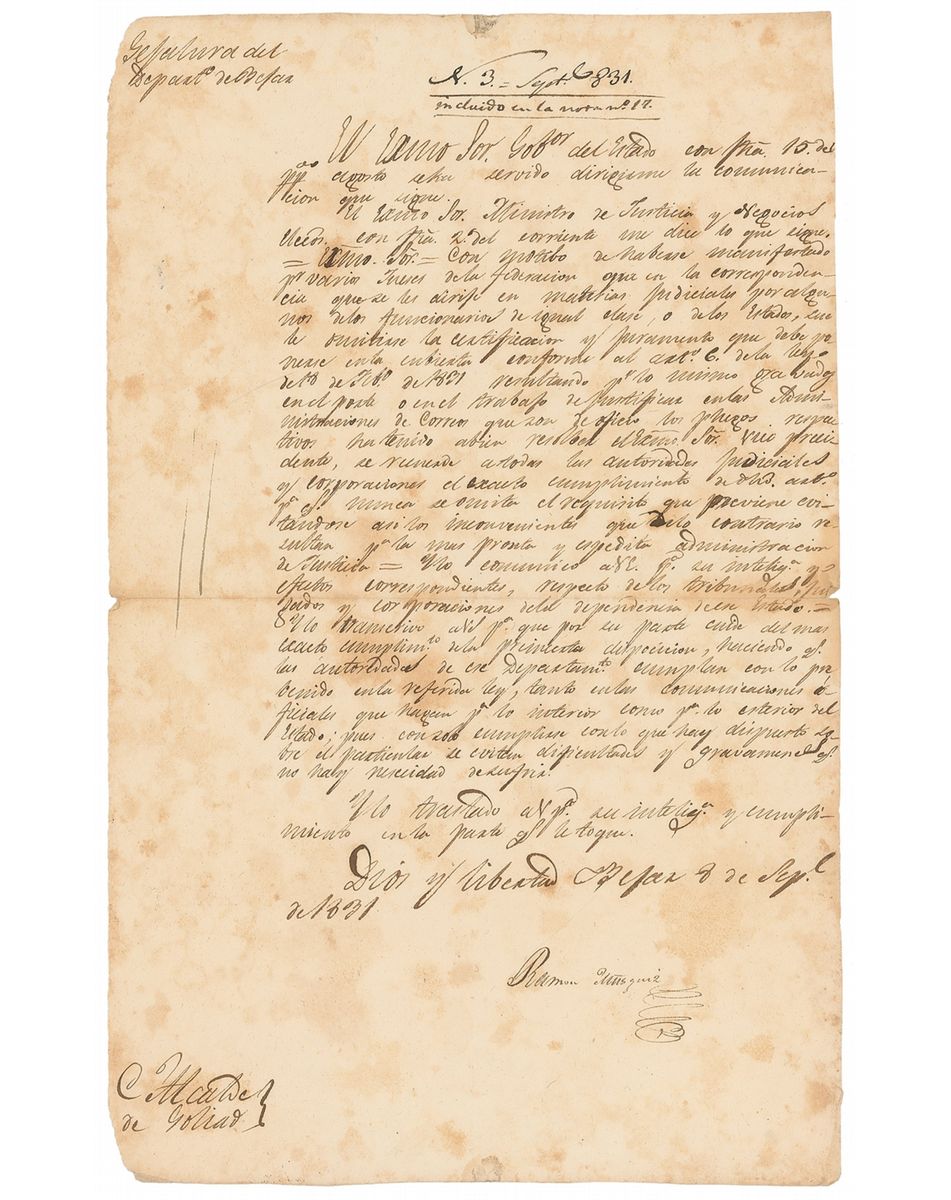 Gefatura del
Departo. de Bejar
N. 3. = Septe. 831.
incluido en la norm no. 17.
El Exmo Sor. Gobor. del Estado con fha. 15 del
ppo. agosto seha servido dirigirme la comunica-
cion que sigue.
El Exmo Sor. Ministro de Justicia y Negocios
Eccos. con fha. 2 del corriente me dice lo que sigue.
= Exmo. Sor. = Con motibo de haberse manifestado
pr. varios Jueses de la federacion que en la corresponden-
cia que se les dirije en materias judiciales por algu-
nos delos funcionarios de igual clase, o delos Estados, sue
le omitirse la certificacion y juramento que debe po
nerse enla cubierta conforme al arto. 6. de la ley
de 18 de Febo. de 1831 resultando pr. lo mismo gravados
enel porte o enel trabajo de justificar enlas Admi-
nistraciones de Correos que son de oficio los pliegos respec
tivos hatenido abien resolber el Exmo. Sor. Vice presi
dente, se recuerde atodas las autoridades judiciales
y corporaciones el exacto cumplimiento de dho. arto.
pa. qe. nunca se omita el requisito que previene evi-
tandose asi los inconvenientes que delo contrario re
sultan pa. la mas pronta y espedita administracion
de Justicia = Y lo comunico aVE. pa. su inteliga. y
efectos correspondientes, respecto de los tribunales, juz
gados y corporaciones dela dependencia de ese Estado. =
Y lo transcrivo aVS pa. que por su parte cuide del mas
exacto cumplimto. dela preincerta disposicion, haciendo qe.
las autoridades de ese Departamto. cumplan con lo pre
benido enla referida ley, tanto enlas comunicaciones o-
ficiales que hagan pa. lo interior como pa. lo esterior del
Estado; pues con solo cumplirse conlo que hay dispuesto so-
bre el particular se evitan dificultades y gravamenes qe.
no hay necesidad desufrir.
Y lo traslado aV pa. su inteliga. y cumpli-
miento en la parte qe. le toque.
Dios y libertad Bejar 8 de Sepe.
de 1831
Ramon Musquiz
C. Alcalde
de Goliad